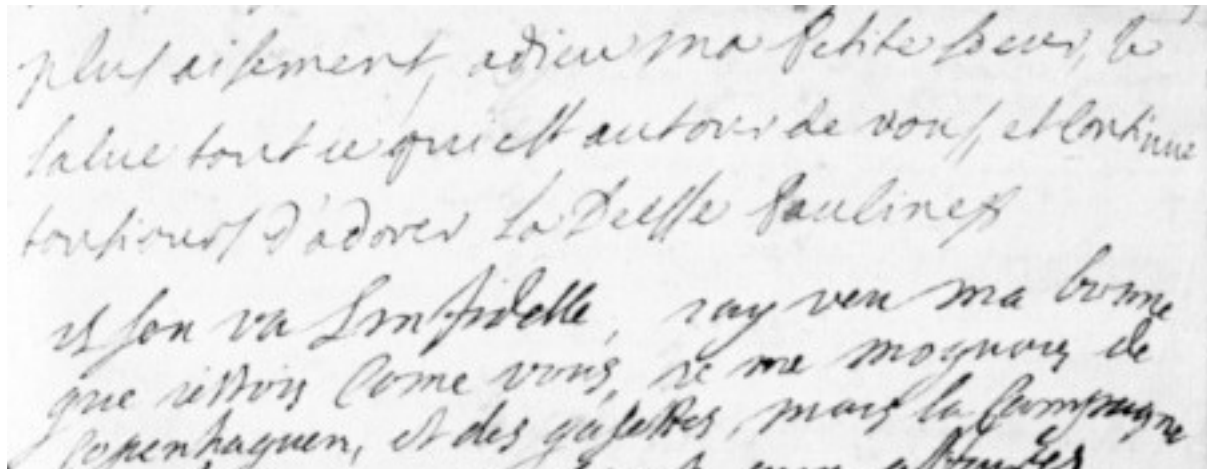 plus aisement, adieu ma petite soeur, Ie
salue tout ce qui est autour de vous, et Continue
tousiours d'adorer La Deesse Pauline
il s'en va L'infidelle, i'ay veu ma bonne
que i'estois Come vous, ie me moquois de
Copenhaguen, et des gasettes, mais la Campagne